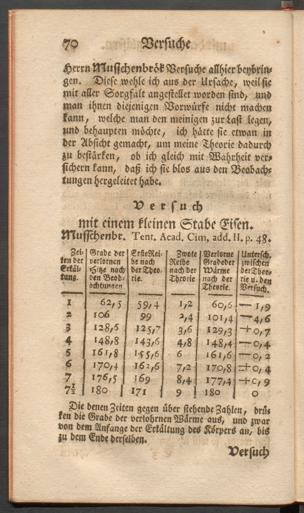 70 Versuche
Herrn Musschenbrök Versuche allhier beybrin-
gen. Diese wehle ich aus der Ursache, weil sie
mit aller Sorgfalt angestellet worden sind, und
man ihnen diejenigen Vorwürfe nicht machen
kann, welche man den meinigen zur Last legen,
und behaupten möchte, ich hätte sie etwan in
der Absicht gemacht, um meine Theorie dadurch
zu bestärken, ob ich gleich mit Wahrheit ver-
sichern kann, daß ich sie blos aus den Beobach-
tungen hergeleitet habe.
Versuch
mit einem kleinen Stabe Eisen.
Musschenbr. Tent. Acad. Cim. add. II. p. 48.
Zei- | Grade der | Erste Rei- | Zwote | Verlorne | Untersch.
ten der | verlornen | he nach | Reihe | Grade der | zwischen
Erkäl- | Hitze nach | der Theo- | nach der | Wärme | der Theo-
tung. | den Beob- | rie. | Theorie. | nach der | rie u. den
achtungen | Theorie. | Versuch.
1 | 62,5 | 59,4 | 1,2 | 60,6 | — 1,9
2 | 106 | 99 | 2,4 | 101,4 | — 4,6
3 | 128,6 | 125,7 | 3,6 | 129,3 | + 0,7
4 | 148,8 | 143,6 | 4,8 | 148,4 | — 0,4
5 | 161,8 | 155,6 | 6 | 161,6 | — 0,2
6 | 170,4 | 163,6 | 7,2 | 170,8 | + 0,4
7 | 176,5 | 169 | 8,4 | 177,4 | + 0,9
7½ | 180 | 171 | 9 | 180 | 0
Die denen Zeiten gegen über stehende Zahlen, drü-
ken die Grade der verlohrnen Wärme aus, und zwar
von dem Anfange der Erkältung des Körpers an, bis
zu dem Ende derselben.
Versuch